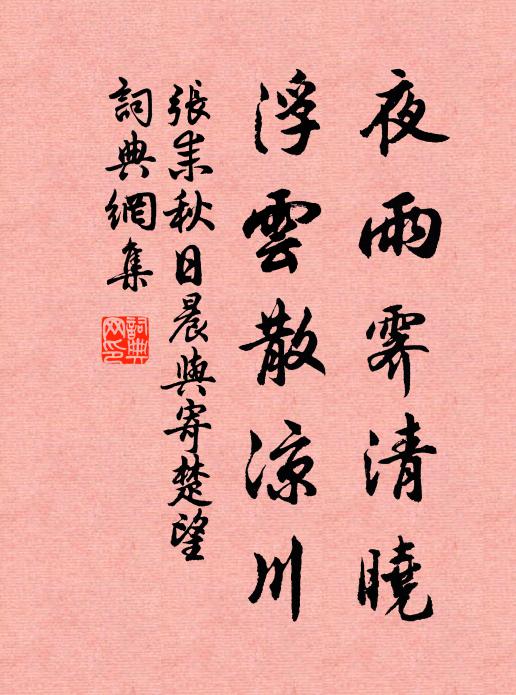 夜雨霽清曉
浮雲散涼川
張耒秋日晨興寄楚望
詞典網集
詞典网印